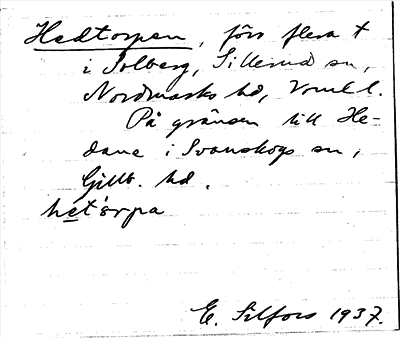 Hedtorpen, förr flera †
i Solberg, Sillerud sn,
Nordmarks hd, Vrml l.
På gränsen till He-
dane i Svanskogs sn,
Gillb. hd.
hetɔrpa
E. Silfors 1937.